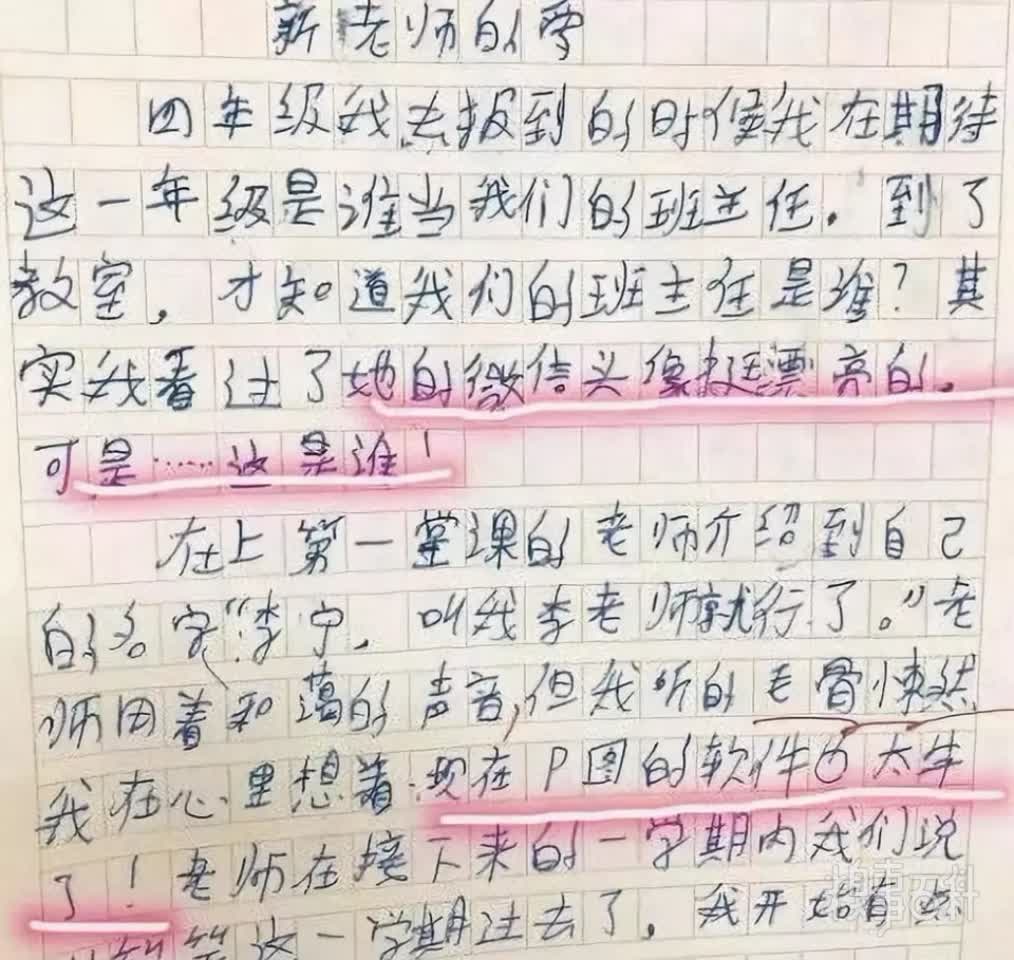 新老师的
四年级我去报到的时候我在期待
这一年级是谁当我们的班主任。到了
教室，才知道我们的班主任是谁？其
实我看过了她的微信头像挺漂亮的。
可是……这是谁！
在上第一堂课的老师介绍到自己
的名字“李宁，叫我李老师就行了。”老
师用着和蔼的声音，但我听的毛骨悚然
我在心里想着：现在P图的软件太牛
了！老师在接下来的一学期内我们说
这一学期过去了，我开始有点